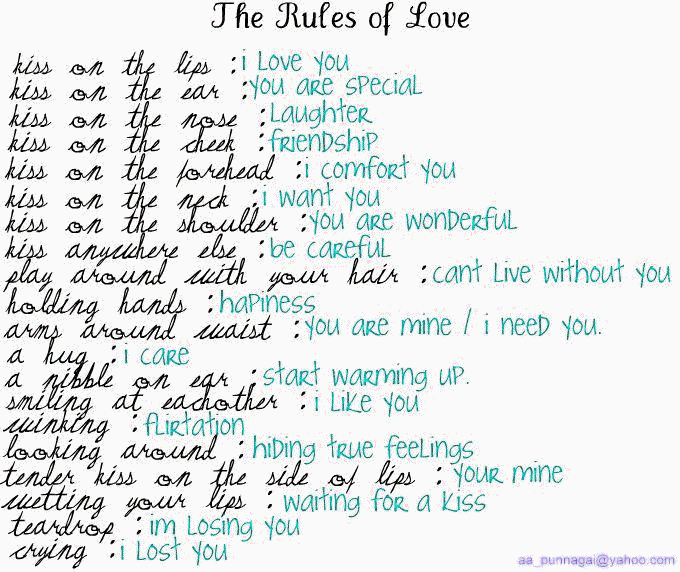 The Rules of Love
kiss on the lips :i Love you
kiss on the ear :you are special
kiss on the nose :Laughter
kiss on the cheek :friendship
kiss on the forehead :i comfort you
kiss on the neck :i want you
kiss on the shoulder :you are wonderful
kiss anywhere else :be careful
play around with your hair :cant Live without you
holding hands :hapiness
arms around waist :you are mine / i need you.
a hug :i care
a nibble on ear :start warming up.
smiling at eachother :i Like you
winking :flirtation
looking around :hiding true feelings
tender kiss on the side of lips : your mine
wetting your lips : waiting for a kiss
teardrop :im Losing you
crying :i Lost you
aa_punnagai@yahoo.com